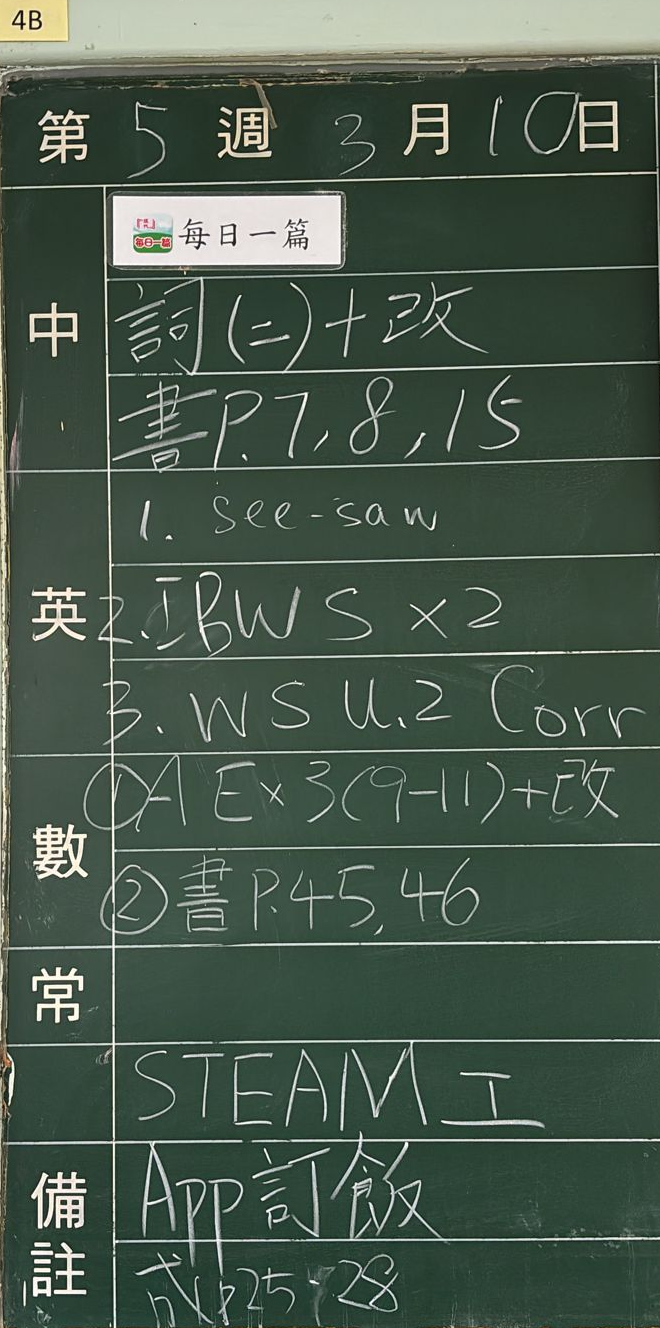 4B
第 5 週 3 月 10 日
中
每日一篇 每日一篇
詞(二)+改
書P.7,8,15
英
1. see-saw
2. IBWS ×2
3. WS U.2 Corr
數
①A Ex 3(9-11)+改
②書P.45,46
常
STEAM工
備註
App訂飯
成p25-28